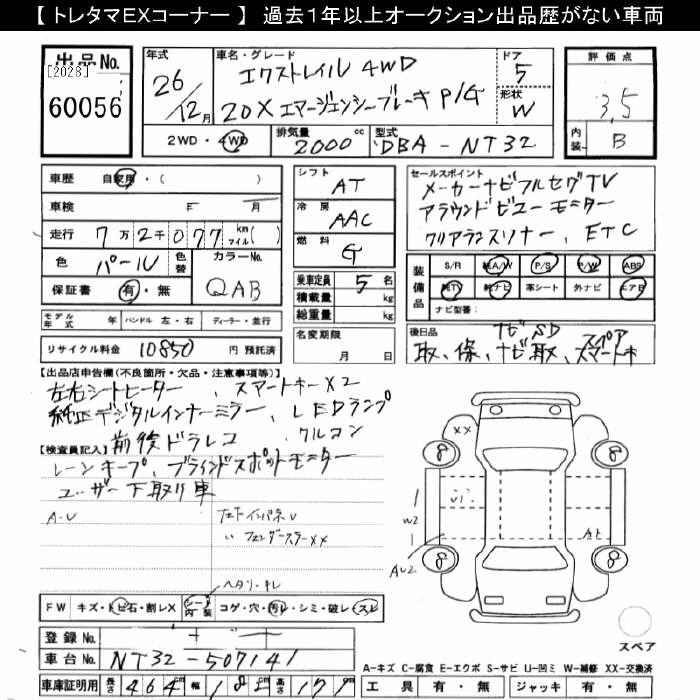 【 トレタマEXコーナー 】 過去１年以上オークション出品歴がない車両
出品No. [2028] 60056
年式 26/12月
車名・グレード エクストレイル 4WD
20X エマージェンシーブレーキ P/G
ドア 5
形状 W
評価点 3,5
内装 B
2WD・4WD 排気量 2000cc 型式 DBA-NT32
車歴 自家用・( )
車検 年 月
走行 7万2千077 km マイル( )
色 パール 色替 カラーNo. QAB
保証書 有・無
シフト AT
冷房 AAC
燃料 G
乗車定員 5名
積載量 kg
総重量 kg
セールスポイント
メーカーナビフルセグTV
アラウンドビューモニター
クリアランスソナー、ETC
装備品 S/R 純A/W P/S P/W ABS
純TV 純ナビ 革シート 外ナビ エアB
ナビ型番：
モデル年式 年 ハンドル 左・右 ディーラー・並行
リサイクル料金 10850 円 預託済
名変期限 月 日
後日品 ナビSD スペア
取、保、ナビ取、スマートキー
【出品店申告欄(不良箇所・欠品・注意事項等)】
左右シートヒーター、スマートキーX2
純正デジタルインナーミラー、LEDランプ
前後ドラレコ、クルコン
【検査員記入】
レーンキープ、ブラインドスポットモニター
ユーザー下取り車
A-U
フェンダーステーXX
ヘタリ・キレ
FW キズ・トビ石・割レX シート内装 コゲ・穴・汚レ・シミ・破レ・スレ
登録No.
車台No. NT32-507141
車庫証明用 長さ 464 幅 182 高さ 171
XX
8 8
8 8
W2
AU2
スペア
A-キズ C-腐食 E-エクボ S-サビ U-凹ミ W-補修 XX-交換済
工具 有・無 ジャッキ 有・無